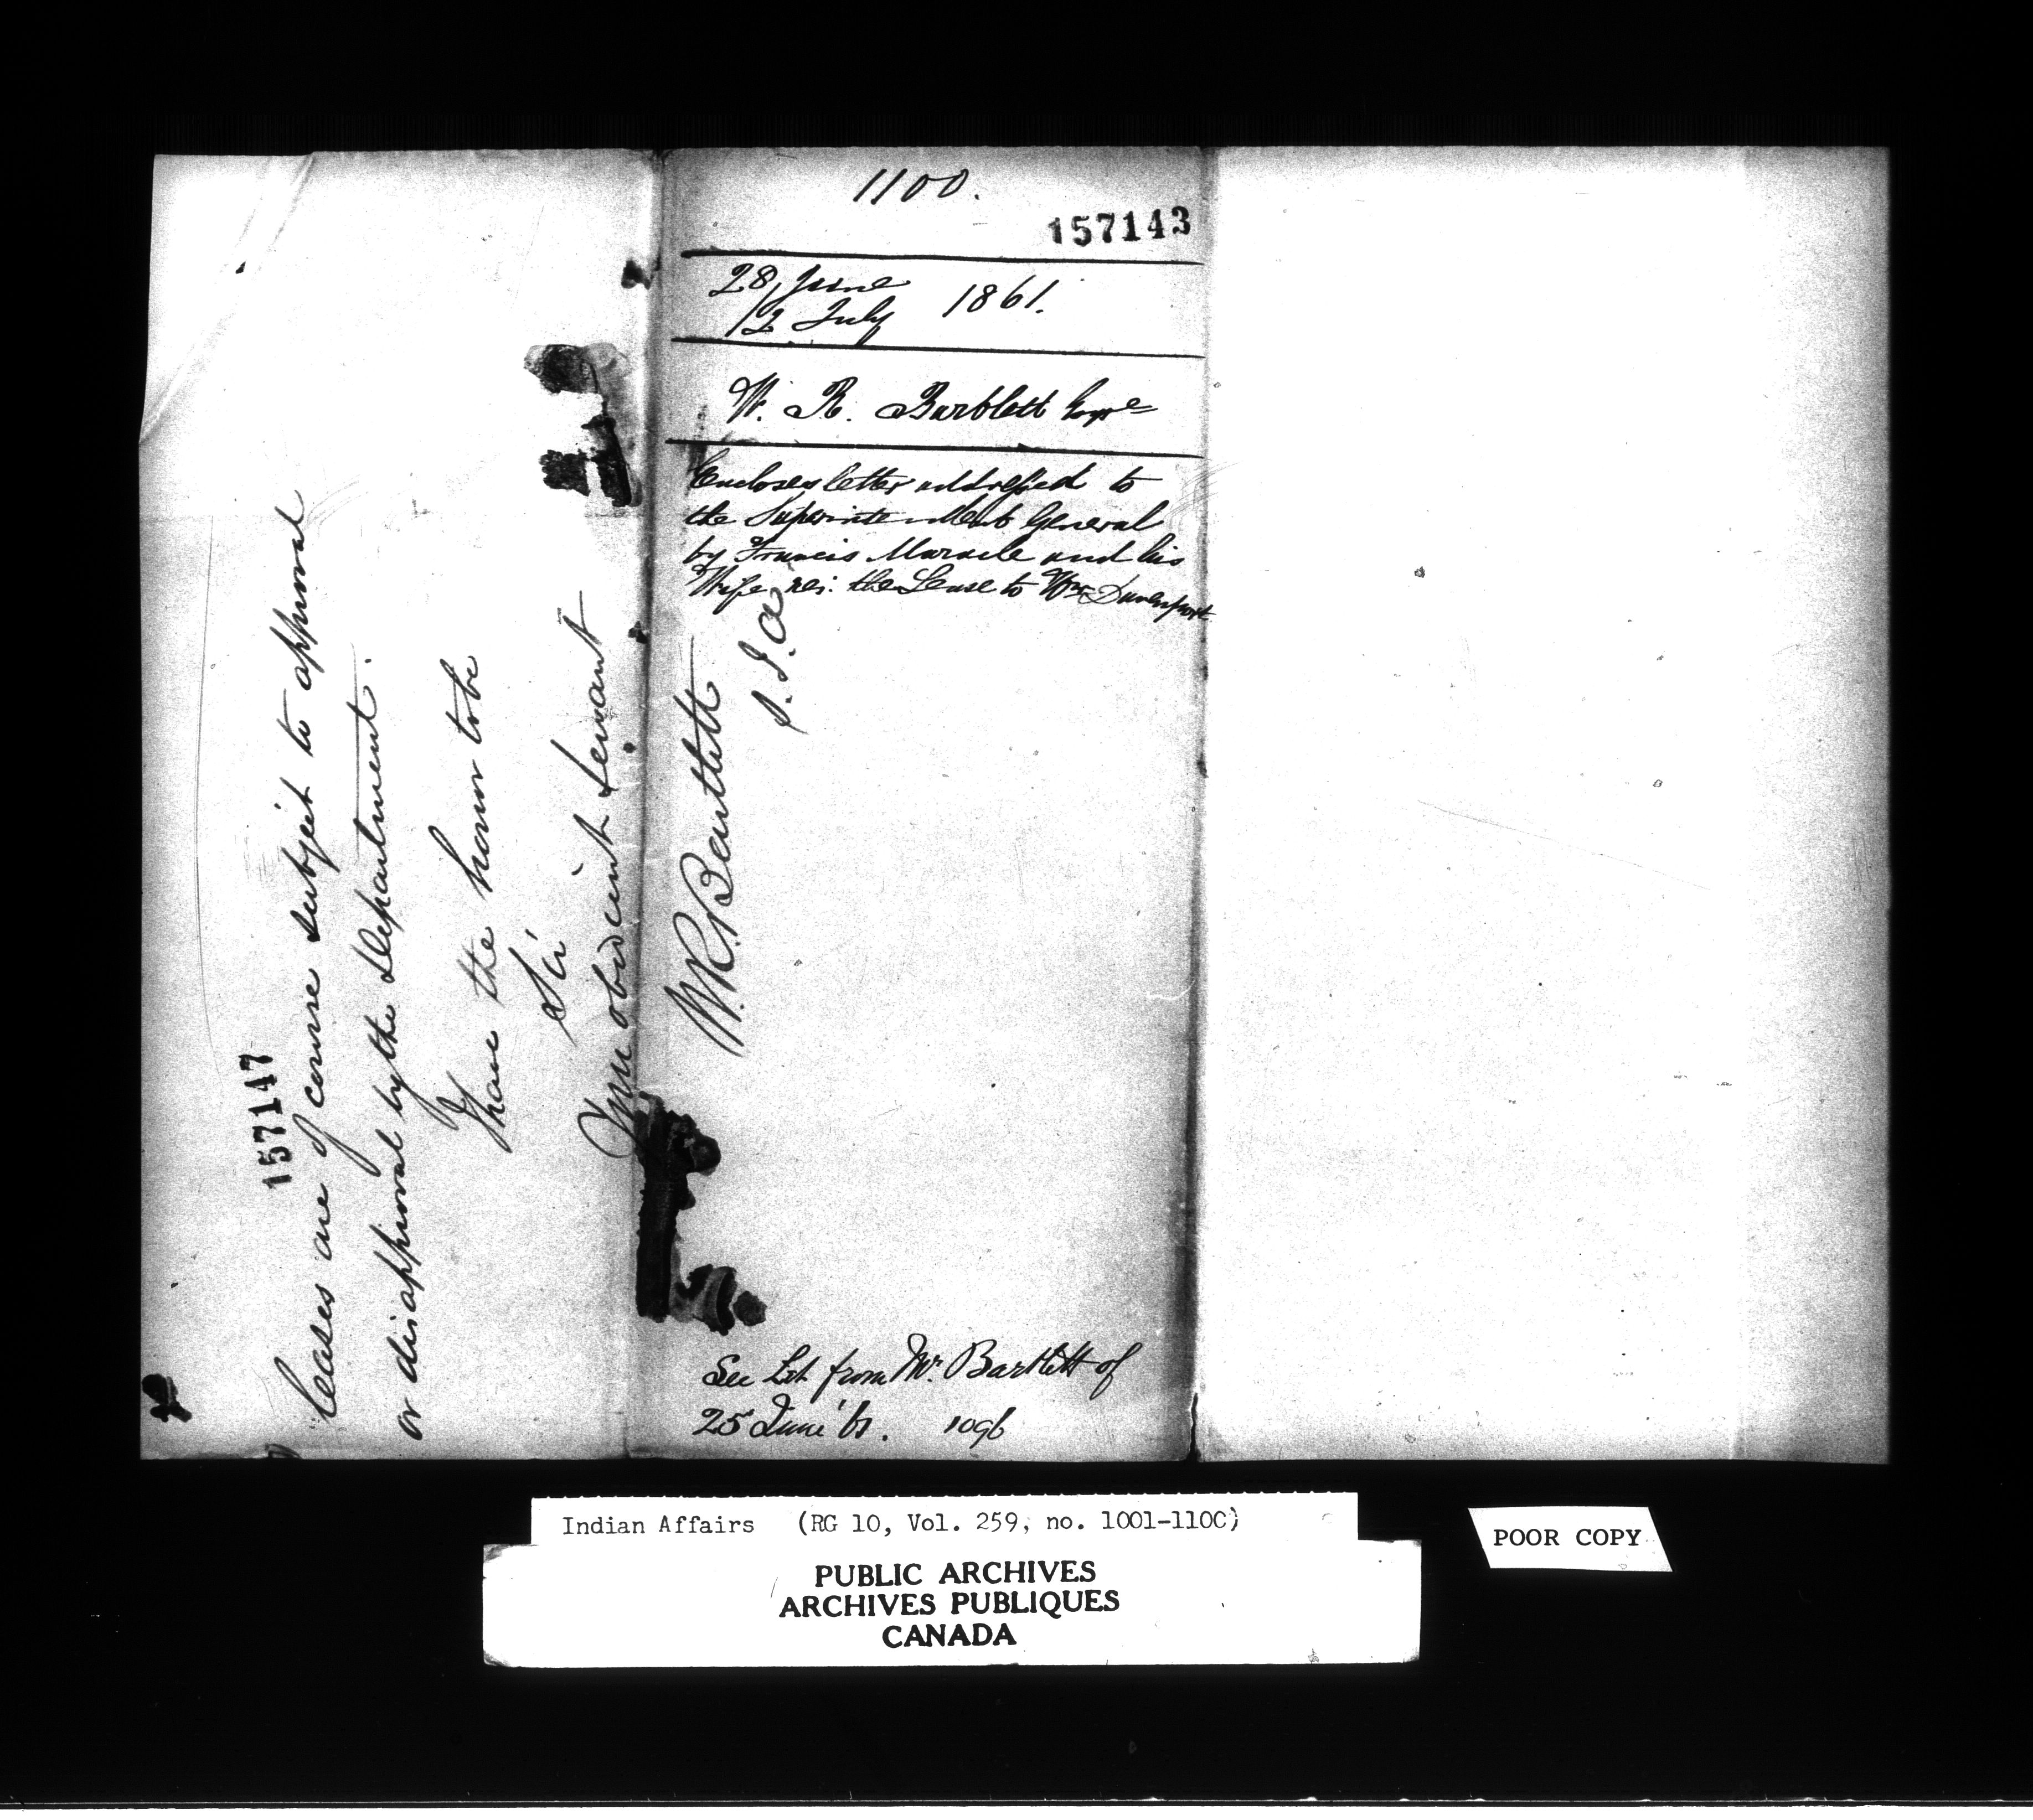 157147
leases are of course subject to approval
or disapproval by the Department.
I have the honor to be
Sir
Your obedient servant
W.R. Bartlett
S.I.A
1100.
157143
28 June
12 July 1861.
W. R. Bartlett Esqre
Encloses letter addressed to
the Superintendent General
by Francis Maracle and his
Wife re: the Lease to Wm Davenport
See Let. from Mr. Bartlett of
25 June '61. 1096
Indian Affairs (RG 10, Vol. 259, no. 1001-1100)
PUBLIC ARCHIVES
ARCHIVES PUBLIQUES
CANADA
POOR COPY